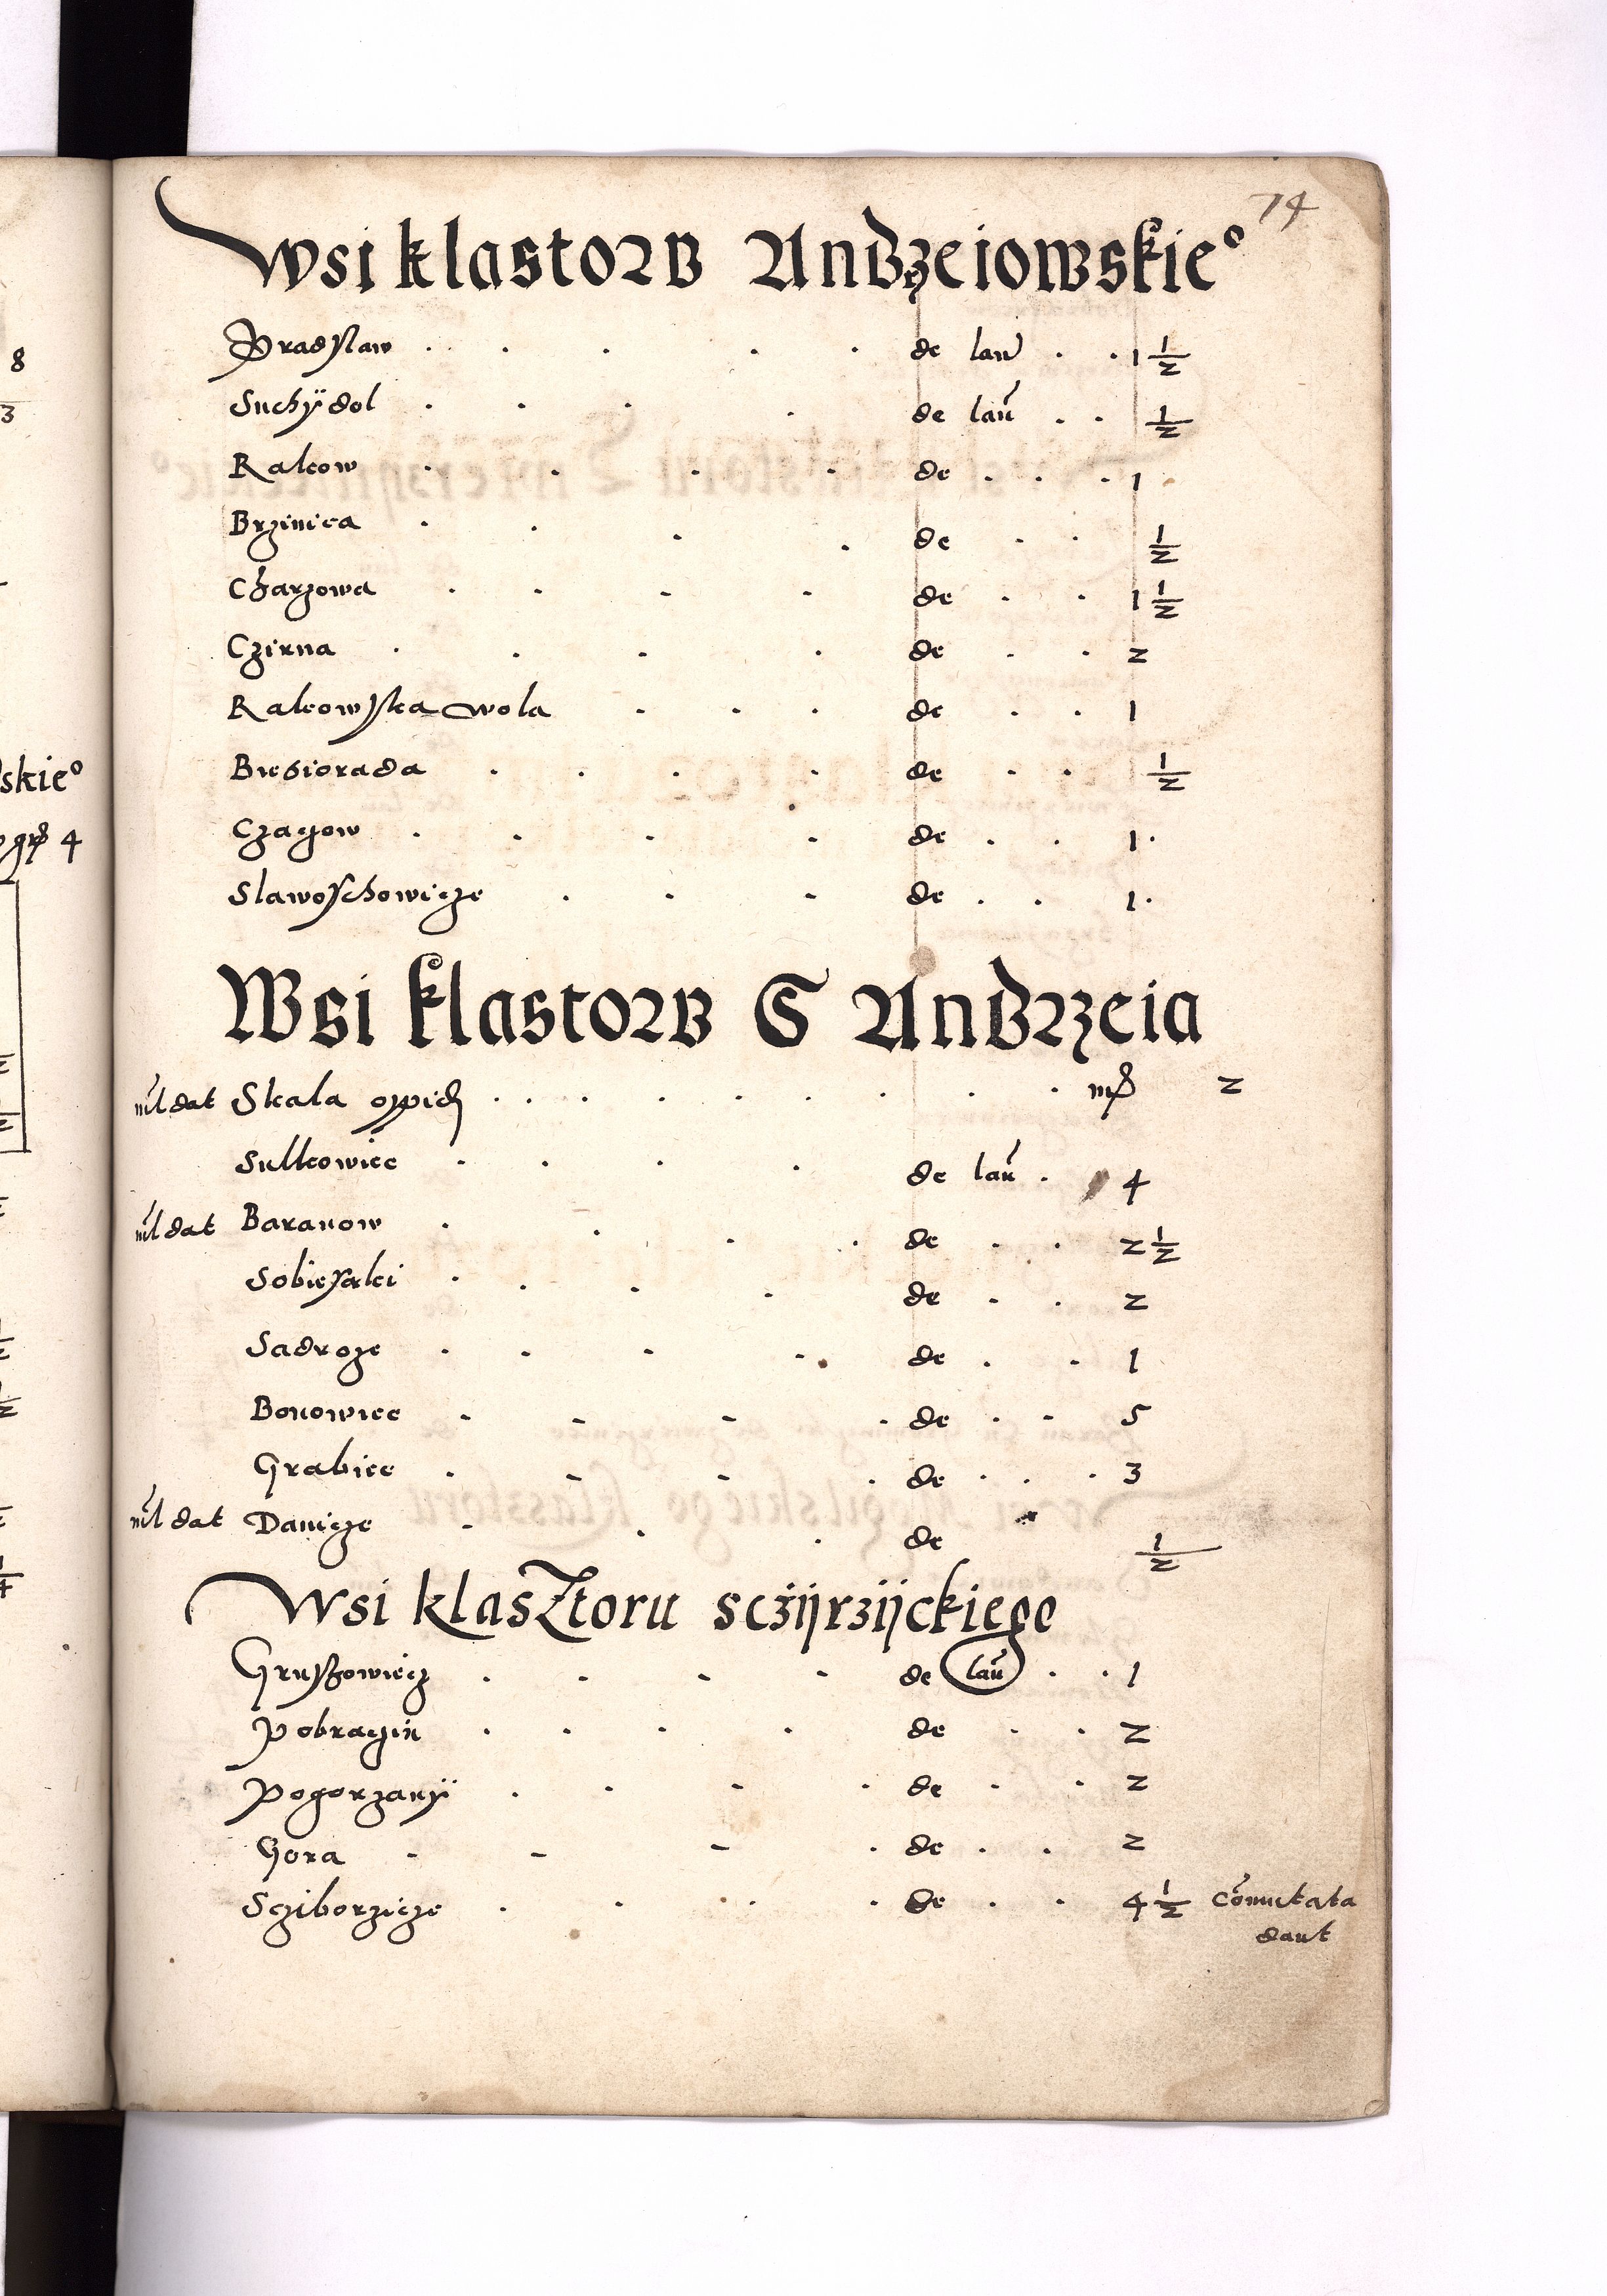 8
3
skie°
grß 4
74
Wsi klastorv Andrzeiowskie°
Pradslaw . . . . . de lan . . 1 1/2
Suchÿdol . . . . de lan̄ . . 1/2
Rakow . . . . de . . . 1
Brzinica . . . . de . . 1/2
Charzowa . . . . de . . 1 1/2
Czirna . . . . de . . 2
Rakowska wola . . . de . . 1
Biesiorada . . . . de . . 1/2
Czagow . . . . de . . 1.
Slawoschowicze . . . de . . 1.
Wsi klastorv S Andrzeia
nil dat Skala oppid . . . . . . . . . mß 2
Sulkowice . . . . de lan̄ . 4
nil dat Baranow . . . . de . . 2 1/2
Sobiesaki . . . . de . . 2
Sadroze . . . . de . . 1
Bonowice . . . . de . . 5
Grabice . . . . de . . . 3
nil dat Danicze . . . de 1/2
Wsi klasztoru sczÿrzÿckiego
Gruszowiecz . . . . de lan̄ . . 1
Pobraczin . . . . de . . 2
Pogorzanÿ . . . . de . . 2
Gora . . . . de . . 2
Scziborzicze . . . . de . . 4 1/2 com̄utata
dant